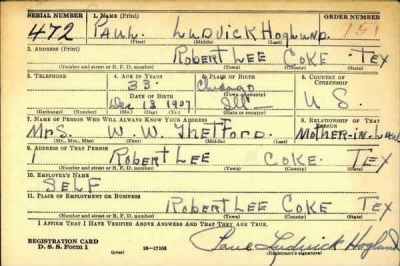 SERIAL NUMBER 1. NAME (Print) ORDER NUMBER
472 PAUL LUDVICK HOGLUND 151
(First) (Middle) (Last)
2. ADDRESS (Print)
ROBERT LEE COKE TEX
(Number and street or R. F. D. number) (Town) (County) (State)
3. TELEPHONE 4. AGE IN YEARS 5. PLACE OF BIRTH 6. COUNTRY OF CITIZENSHIP
33 Chicago
DATE OF BIRTH (Town or county)
Dec 13 1907 Ill U S
(Exchange) (Number) (Mo.) (Day) (Yr.) (State or country)
7. NAME OF PERSON WHO WILL ALWAYS KNOW YOUR ADDRESS 8. RELATIONSHIP OF THAT PERSON
MRS. W. W. THETFORD MOTHER-IN-LAW
(Mr., Mrs., Miss) (First) (Middle) (Last)
9. ADDRESS OF THAT PERSON
ROBERT LEE COKE TEX
(Number and street or R. F. D. number) (Town) (County) (State)
10. EMPLOYER'S NAME
SELF
11. PLACE OF EMPLOYMENT OR BUSINESS
ROBERT LEE COKE TEX
(Number and street or R. F. D. number) (Town) (County) (State)
I AFFIRM THAT I HAVE VERIFIED ABOVE ANSWERS AND THAT THEY ARE TRUE.
REGISTRATION CARD
D. S. S. Form 1 (over) 16—17105 Paul Ludvick Hoglund
(Registrant's signature)